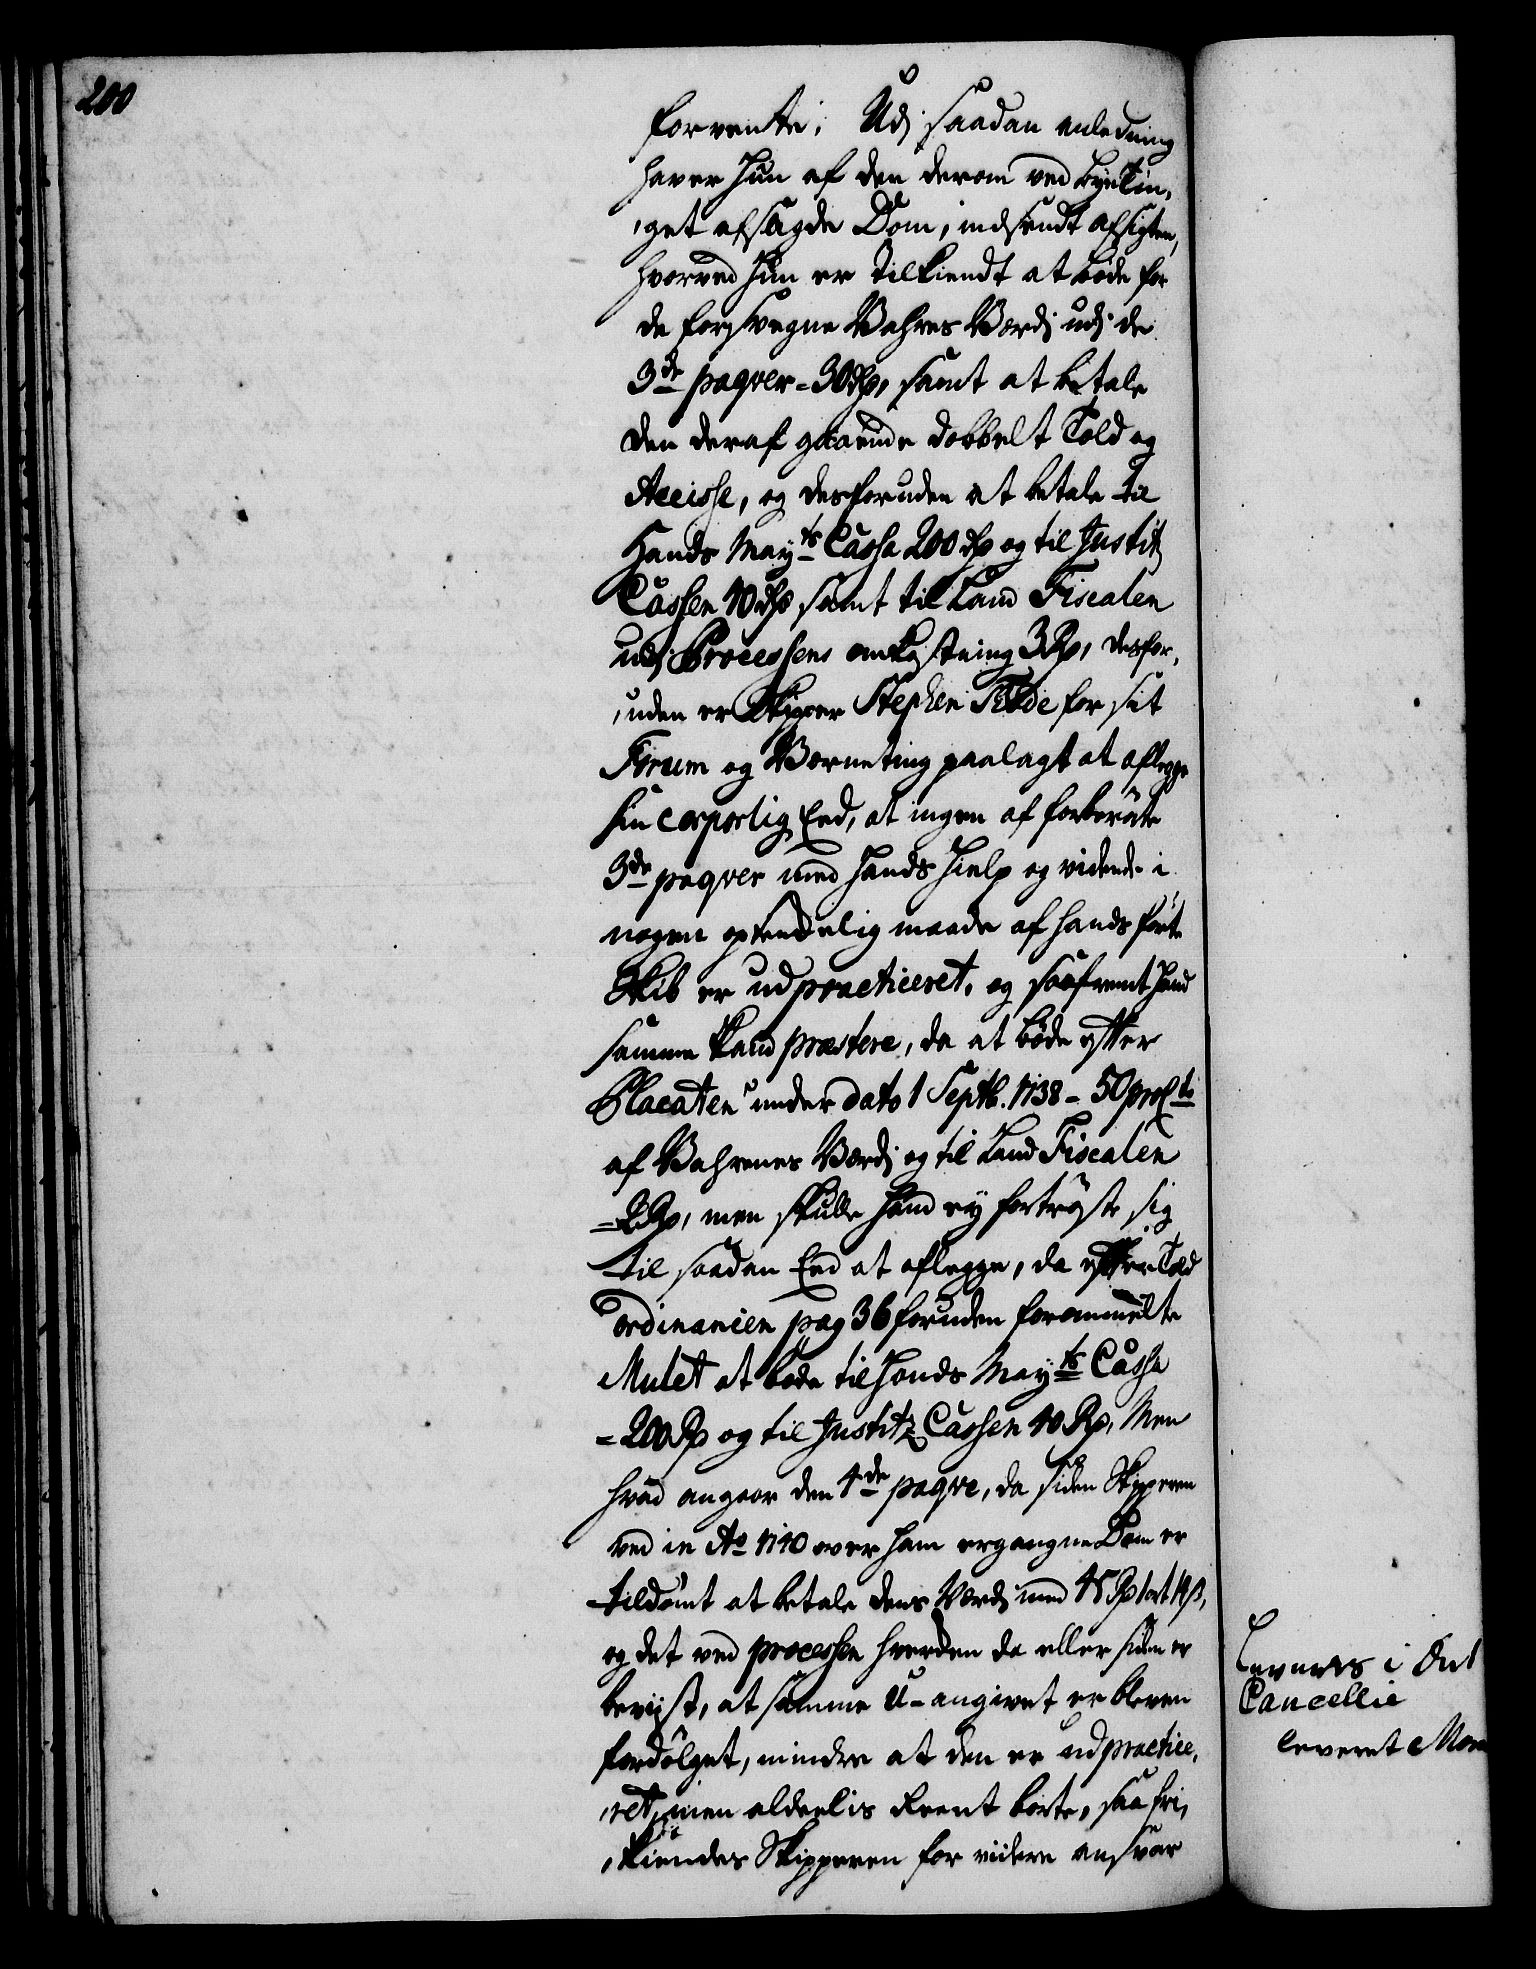 200
forvente; Udj saadan anledning
haver hun af den derom ved byeTin,
,get afsagde Dom, indsendt afsigten,
hvorved hun er tilkiendt at bøde for
de forsvegne Vahres Værdj udj de
3de paqver = 30 Rdr, samt at betale
den deraf gaaende dobbelt Told og
Accisse, og desforuden at betale til
Hands Mayts Cassa 200 Rdr og til Justitz
Cassen 40 Rdr samt til Land Fiscalen
udj Processens omkostning 3 Rdr, desfor,
,uden er Skipper Stephen for sit
Forum og Værneting paalagt at aflegge
sin corporlig Eed, at ingen af forberørte
3de paqver med hands Hielp og vidende i
nogen optendelig maade af hands førte
Skib er udpracticeret, og saafremt hand
samme kand præstere, da at bøde efter
Placaten under dato 1 Septb. 1738 - 50 proCto
af Vahrenes Værdj og til Land Fiscalen
= 2 Rdr, men skulle hand ey fortrøste sig
til saadan Eed at aflegge, da efter Told
ordinancen pag 36 foruden forommelte
Mulct at bøde til Hands Mayts Cassa
= 200 Rdr og til Justitz Cassen 40 Rdr, Men
hvad angaar den 4de paqve, da siden Skipperen
ved in Ao 1740 over ham ergangne Dom er
tildømt at betale dens Værdj med 45 Rdr 1 ort 14 s,
og det ved processen hverden da eller siden er
beviist, at samme U-angivet er bleven
fordølget, mindre at den er udpractice,
,ret, men aldeelis Reent borte, saa fri,
,kiendes Skipperen for viidere ansvar
Leveres i
Cancellie
leveret